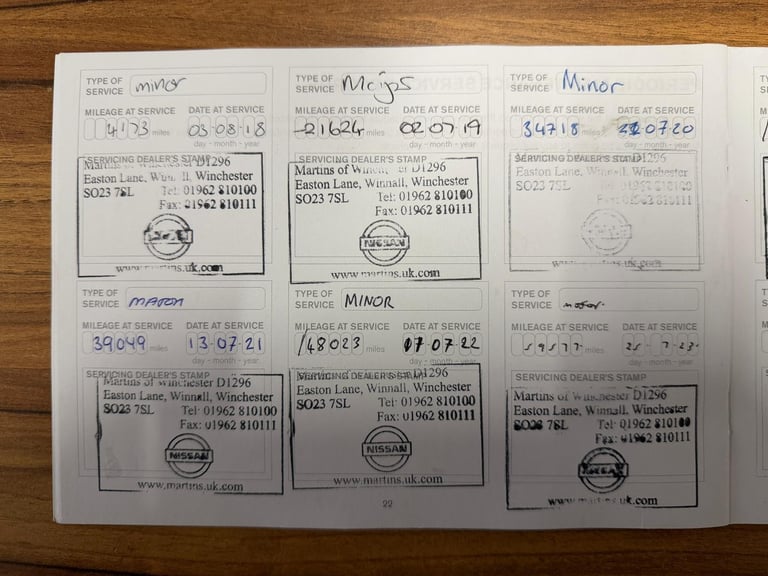 TYPE OF SERVICE minor
MILEAGE AT SERVICE DATE AT SERVICE
4173 miles 03-08-18
day - month - year
SERVICING DEALER'S STAMP
Martins of Winchester D1296
Easton Lane, Winnall, Winchester
SO23 7SL Tel: 01962 810100
Fax: 01962 810111
NISSAN
www.martins.uk.com
TYPE OF SERVICE Major
MILEAGE AT SERVICE DATE AT SERVICE
21624 miles 02-07-19
day - month - year
SERVICING DEALER'S STAMP
Martins of Winchester D1296
Easton Lane, Winnall, Winchester
SO23 7SL Tel: 01962 810100
Fax: 01962 810111
NISSAN
www.martins.uk.com
TYPE OF SERVICE Minor
MILEAGE AT SERVICE DATE AT SERVICE
34718 miles 07 20
day - month - year
SERVICING DEALER'S STAMP
D1296
Easton Lane, Winnall, Winchester
SO23 7SL Tel: 01962 810100
Fax: 01962 810111
www.martins.uk.com
TYPE OF SERVICE
MILEAGE AT SERVICE DATE AT SERVICE
39049 miles 13-07-21
day - month - year
SERVICING DEALER'S STAMP
Martins of Winchester D1296
Easton Lane, Winnall, Winchester
SO23 7SL Tel: 01962 810100
Fax: 01962 810111
NISSAN
www.martins.uk.com
TYPE OF SERVICE MINOR
MILEAGE AT SERVICE DATE AT SERVICE
48023 miles 07 22
day - month - year
SERVICING DEALER'S STAMP
Martins of Winchester D1296
Easton Lane, Winnall, Winchester
SO23 7SL Tel: 01962 810100
Fax: 01962 810111
NISSAN
www.martins.uk.com
TYPE OF SERVICE
MILEAGE AT SERVICE DATE AT SERVICE
miles 25-7-23
day - month - year
SERVICING DEALER'S STAMP
Martins of Winchester D1296
Easton Lane, Winnall, Winchester
SO23 7SL Tel: 01962 810100
Fax: 01962 810111
NISSAN
www.martins.uk.com
22